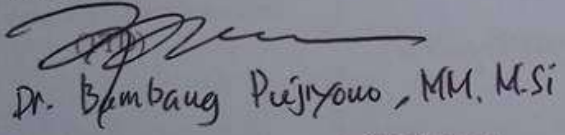 Dr. Bambang Pujiyono, MM. M.Si